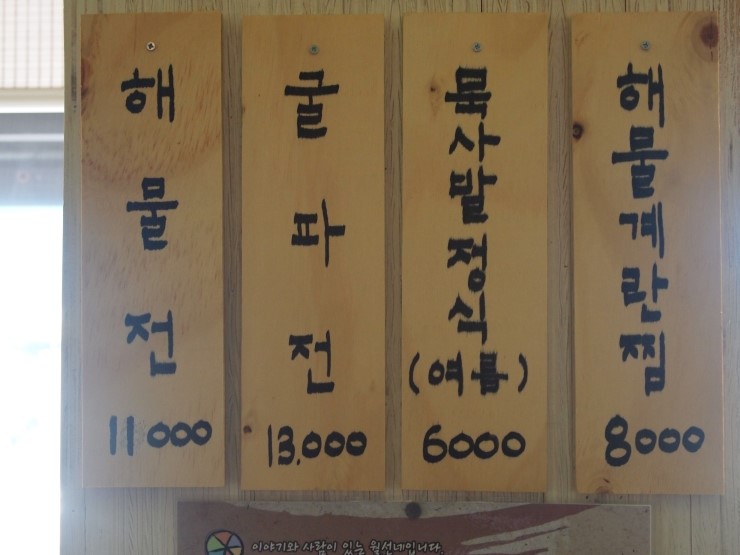 해물전
11000
굴파전
13.000
묵사발정식
(여름)
6000
해물계란찜
8000
이야기와 사람이 있는 월선네입니다.